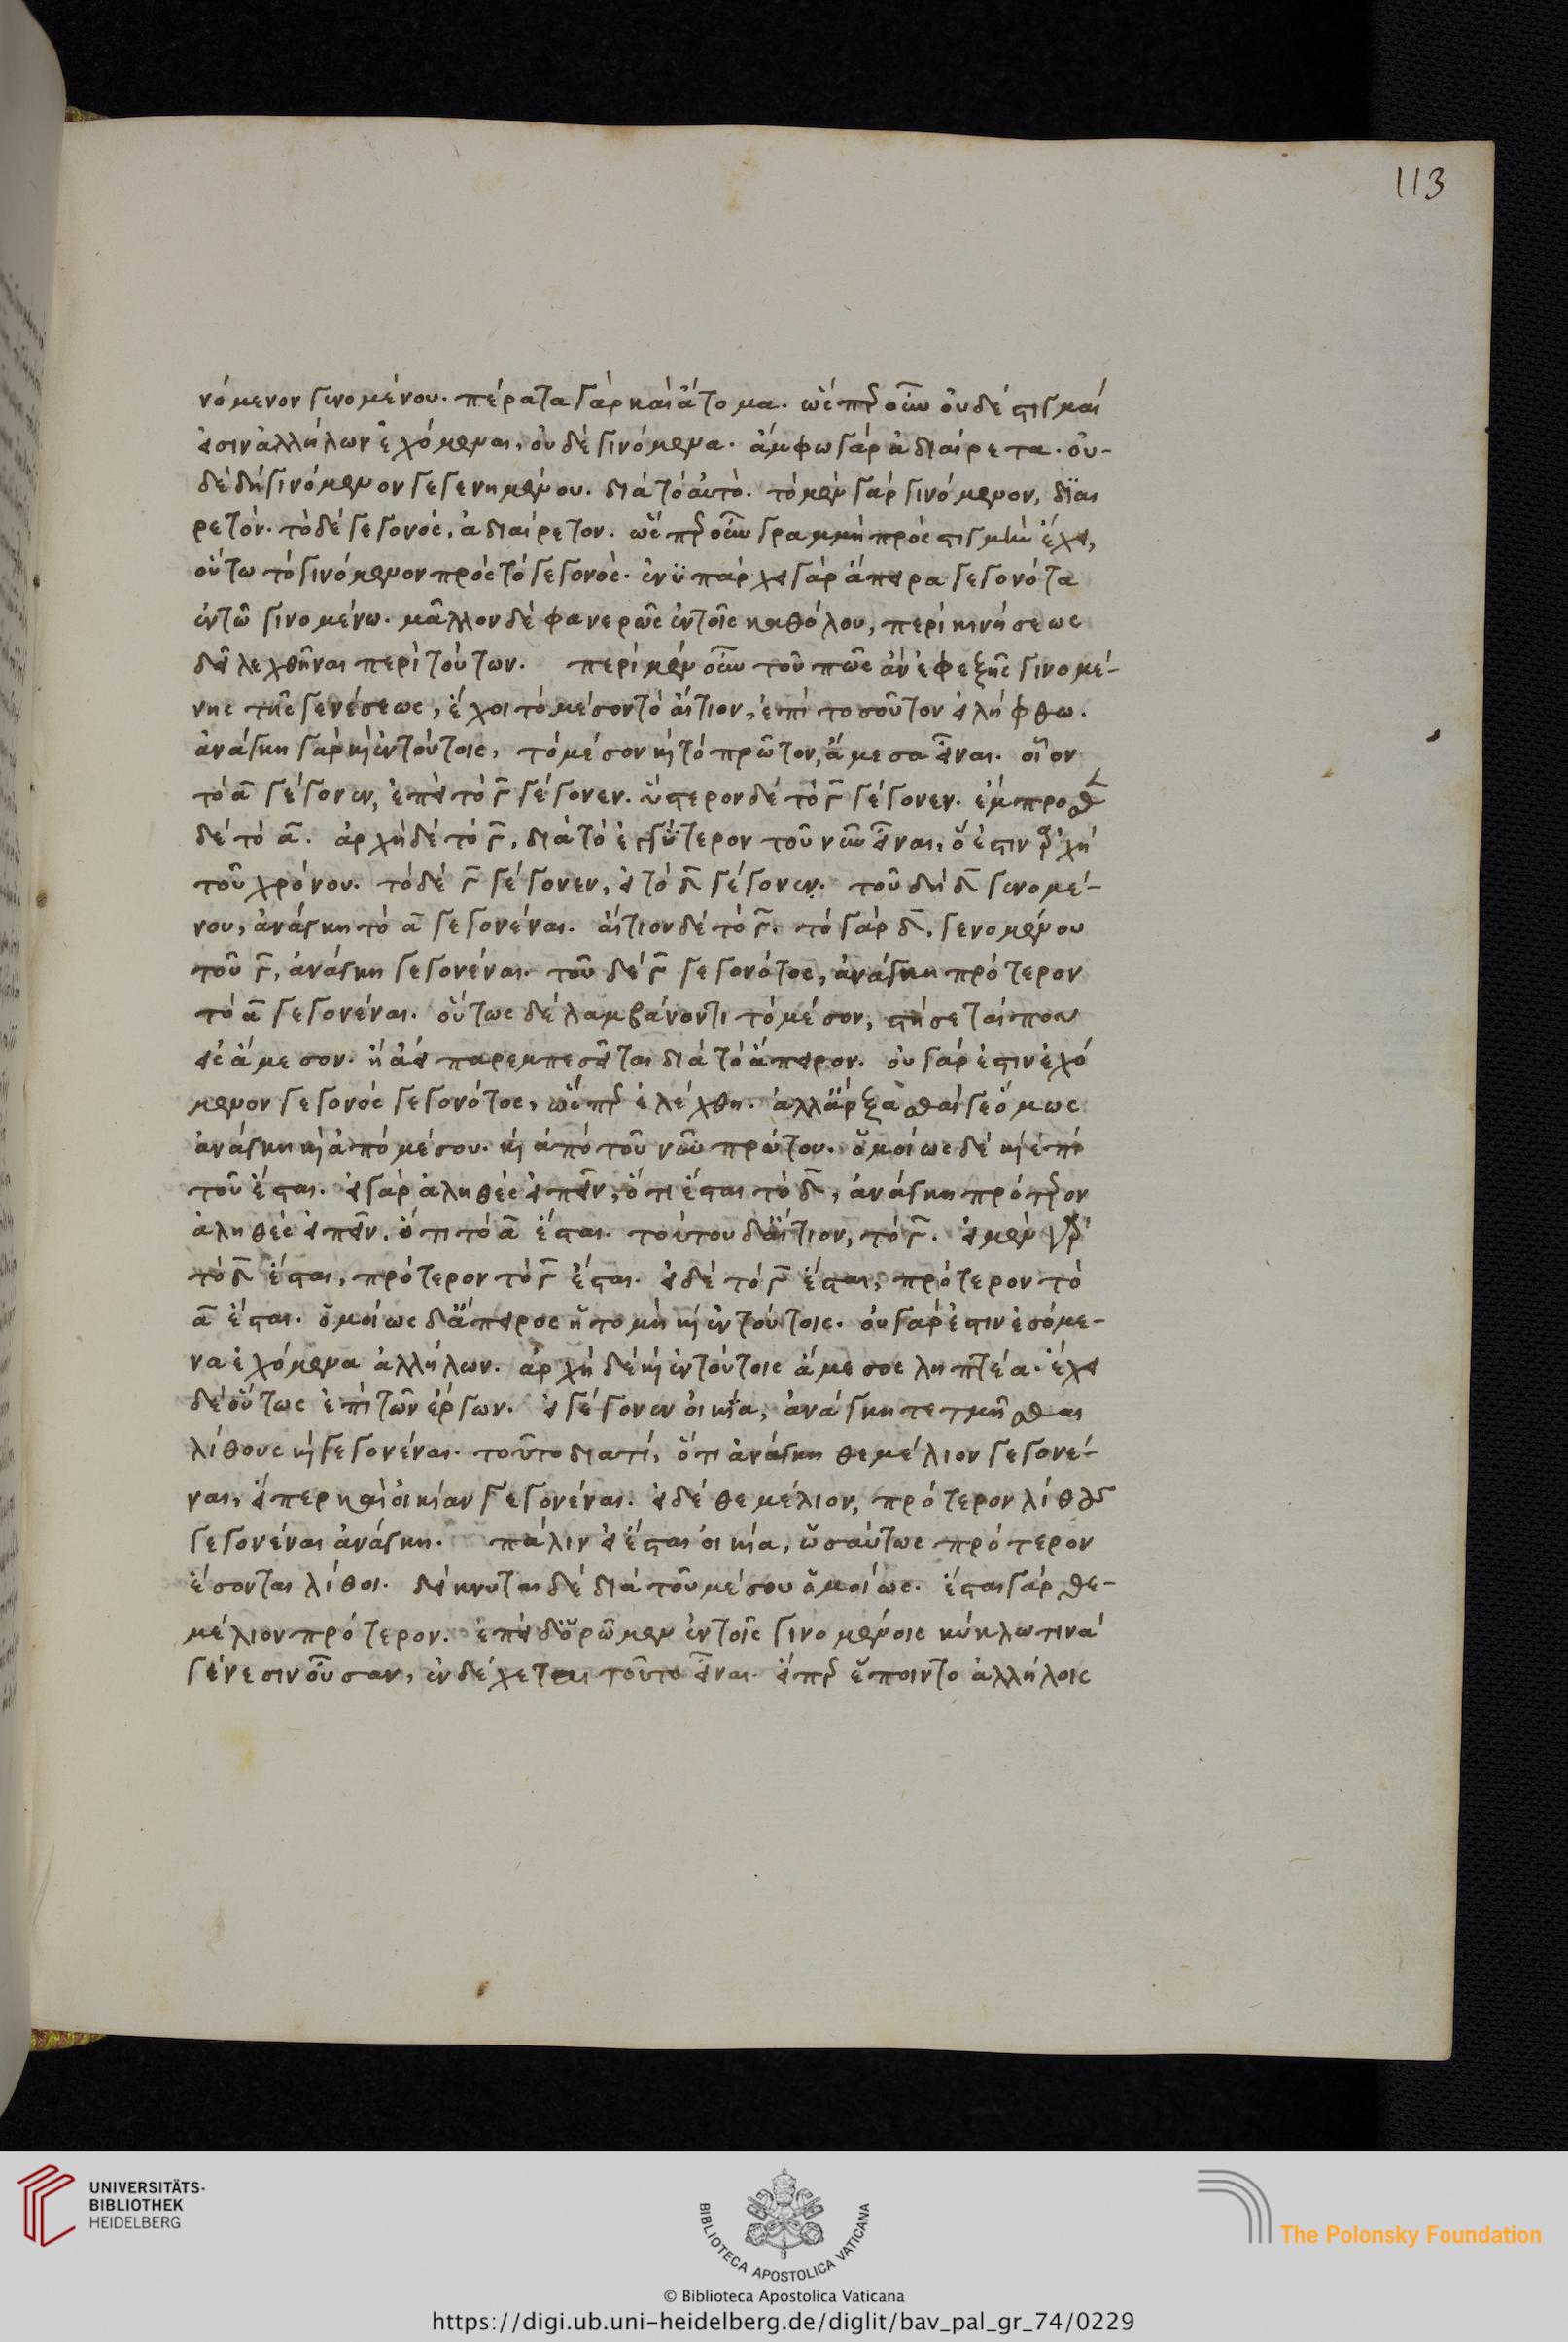 113
νόμενον γινομένου. πέρατα γὰρ καὶ ἄτομα. ὥσπερ οὖν οὐδὲ στιγμαί
εἰσιν ἀλλήλων ἐχόμεναι, οὐδὲ γινόμενα. ἄμφω γὰρ ἀδιαίρετα. οὐ-
δὲ δὴ γινόμενον γεγενημένου. διὰ τὸ αὐτό. τὸ μὲν γὰρ γινόμενον, διαι
ρετόν. τὸ δὲ γεγονός, ἀδιαίρετον. ὥσπερ οὖν γραμμὴ πρὸς στιγμὴν ἔχει,
οὕτω τὸ γινόμενον πρὸς τὸ γεγονός. ἐνϋπάρχει γὰρ ἄπειρα γεγονότα
ἐν τῶ γινομένω. μᾶλλον δὲ φανερῶς ἐν τοῖς καθόλου, περὶ κινήσεως
δεῖ λεχθῆναι περὶ τούτων. περὶ μὲν οὖν τοῦ πῶς ἂν ἐφεξῆς γινομέ-
νης τῆς γενέσεως, ἔχοι τὸ μέσον τὸ αἴτιον, ἐπὶ τοσοῦτον εἰλήφθω.
ἀνάγκη γὰρ κἠ ἐν τούτοις, τὸ μέσον κὴ τὸ πρῶτον, ἄμεσα εἶναι. οἷον
τὸ α γέγονεν, ἐπεὶ τὸ γ γέγονεν. ὕστερον δὲ τὸ γ γέγονεν. ἔμπροσθεν
δὲ τὸ α. ἀρχὴ δὲ τὸ γ, διὰ τὸ ἐγγύτερον τοῦ νῦν εἶναι, ὅ ἐστιν ἀρχὴ
τοῦ χρόνου. τὸ δὲ γ γέγονεν, εἰ τὸ δ γέγονεν. τοῦ δὴ δ γινομέ-
νου, ἀνάγκη τὸ α γεγονέναι. αἴτιον δὲ τὸ γ. τὸ γὰρ δ, γενομένου
τοῦ γ, ἀνάγκη γεγονέναι. τοῦ δὲ γ γεγονότος, ἀνάγκη πρότερον
τὸ α γεγονέναι. οὕτως δὲ λαμβάνοντι τὸ μέσον, στήσεταί που
εἰς ἄμεσον. ἢ ἀεὶ παρεμπεσεῖται διὰ τὸ ἄπειρον. οὐ γάρ ἐστιν ἐχό
μενον γεγονὸς γεγονότος, ὥσπερ ἐλέχθη. ἀλλ᾽ ἄρξασθαί γε ὅμως
ἀνάγκη κὴ ἀπὸ μέσου. κὴ ἀπὸ τοῦ νῦν πρώτου. ὁμοίως δὲ κὴ ἐπὶ
τοῦ ἔσται. εἰ γὰρ ἀληθὲς εἰπεῖν, ὅτι ἔσται τὸ δ, ἀνάγκη πρότερον
ἀληθὲς εἰπεῖν, ὅτι τὸ α ἔσται. τούτου δ᾽ αἴτιον, τὸ γ. εἰ μὲν γὰρ
τὸ δ ἔσται, πρότερον τὸ γ ἔσται. εἰ δὲ τὸ γ ἔσται, πρότερον τὸ
α ἔσται. ὁμοίως δ᾽ ἄπειρος ἡ τομὴ κὴ ἐν τούτοις. οὐ γάρ ἐστιν ἐσόμε-
να ἐχόμενα ἀλλήλων. ἀρχὴ δὲ κὴ ἐν τούτοις ἄμεσος ληπτέα. ἔχει
δὲ οὕτως ἐπὶ τῶν ἔργων. εἰ γέγονεν οἰκία, ἀνάγκη τετμῆσθαι
λίθους κὴ γεγονέναι. τοῦτο διατί, ὅτι ἀνάγκη θεμέλιον γεγονέ-
ναι, εἴπερ καὶ οἰκίαν γεγονέναι. εἰ δὲ θεμέλιον, πρότερον λίθους
γεγονέναι ἀνάγκη. πάλιν εἰ ἔσται οἰκία, ὡσαύτως πρότερον
ἔσονται λίθοι. δείκνυται δὲ διὰ τοῦ μέσου ὁμοίως. ἔσται γὰρ θε-
μέλιον πρότερον. ἐπεὶ δ᾽ ὁρῶμεν ἐν τοῖς γινομένοις κύκλω τινὰ
γένεσιν οὖσαν, ἐνδέχεται τοῦτο εἶναι. εἴπερ ἕποιντο ἀλλήλοις
UNIVERSITÄTS-
BIBLIOTHEK
HEIDELBERG
BIBLIOTECA APOSTOLICA VATICANA
The Polonsky Foundation
© Biblioteca Apostolica Vaticana
https://digi.ub.uni-heidelberg.de/diglit/bav_pal_gr_74/0229